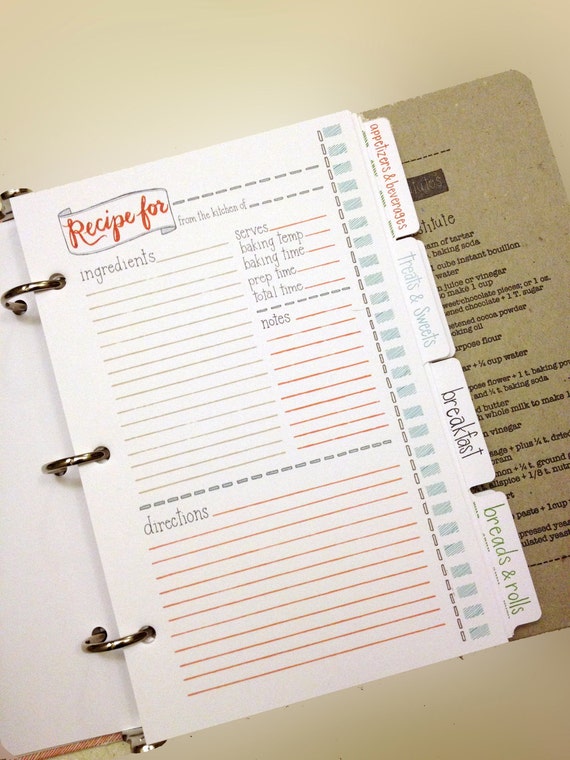 Recipe for
from the kitchen of
ingredients
serves
baking temp
baking time
prep time
total time
notes
directions
appetizers & beverages
treats & sweets
breakfast
breads & rolls
am of tartar
baking soda
cube instant bouillon
water
juice or vinegar
to make 1 cup
sweet chocolate pieces; or 1 oz.
ened chocolate + 1 T. sugar
etened cocoa powder
oking oil
urpose flour
+ ¼ cup water
pose flower + 1 t. baking
and ½ t. baking soda
d butter
h whole milk to make 1
on vinegar
sage + plus ¼ t. dried
ram
mon + ¼ t. ground
allspice + 1/8 t.
paste + 1 cup
pressed yeast
ulated yeast